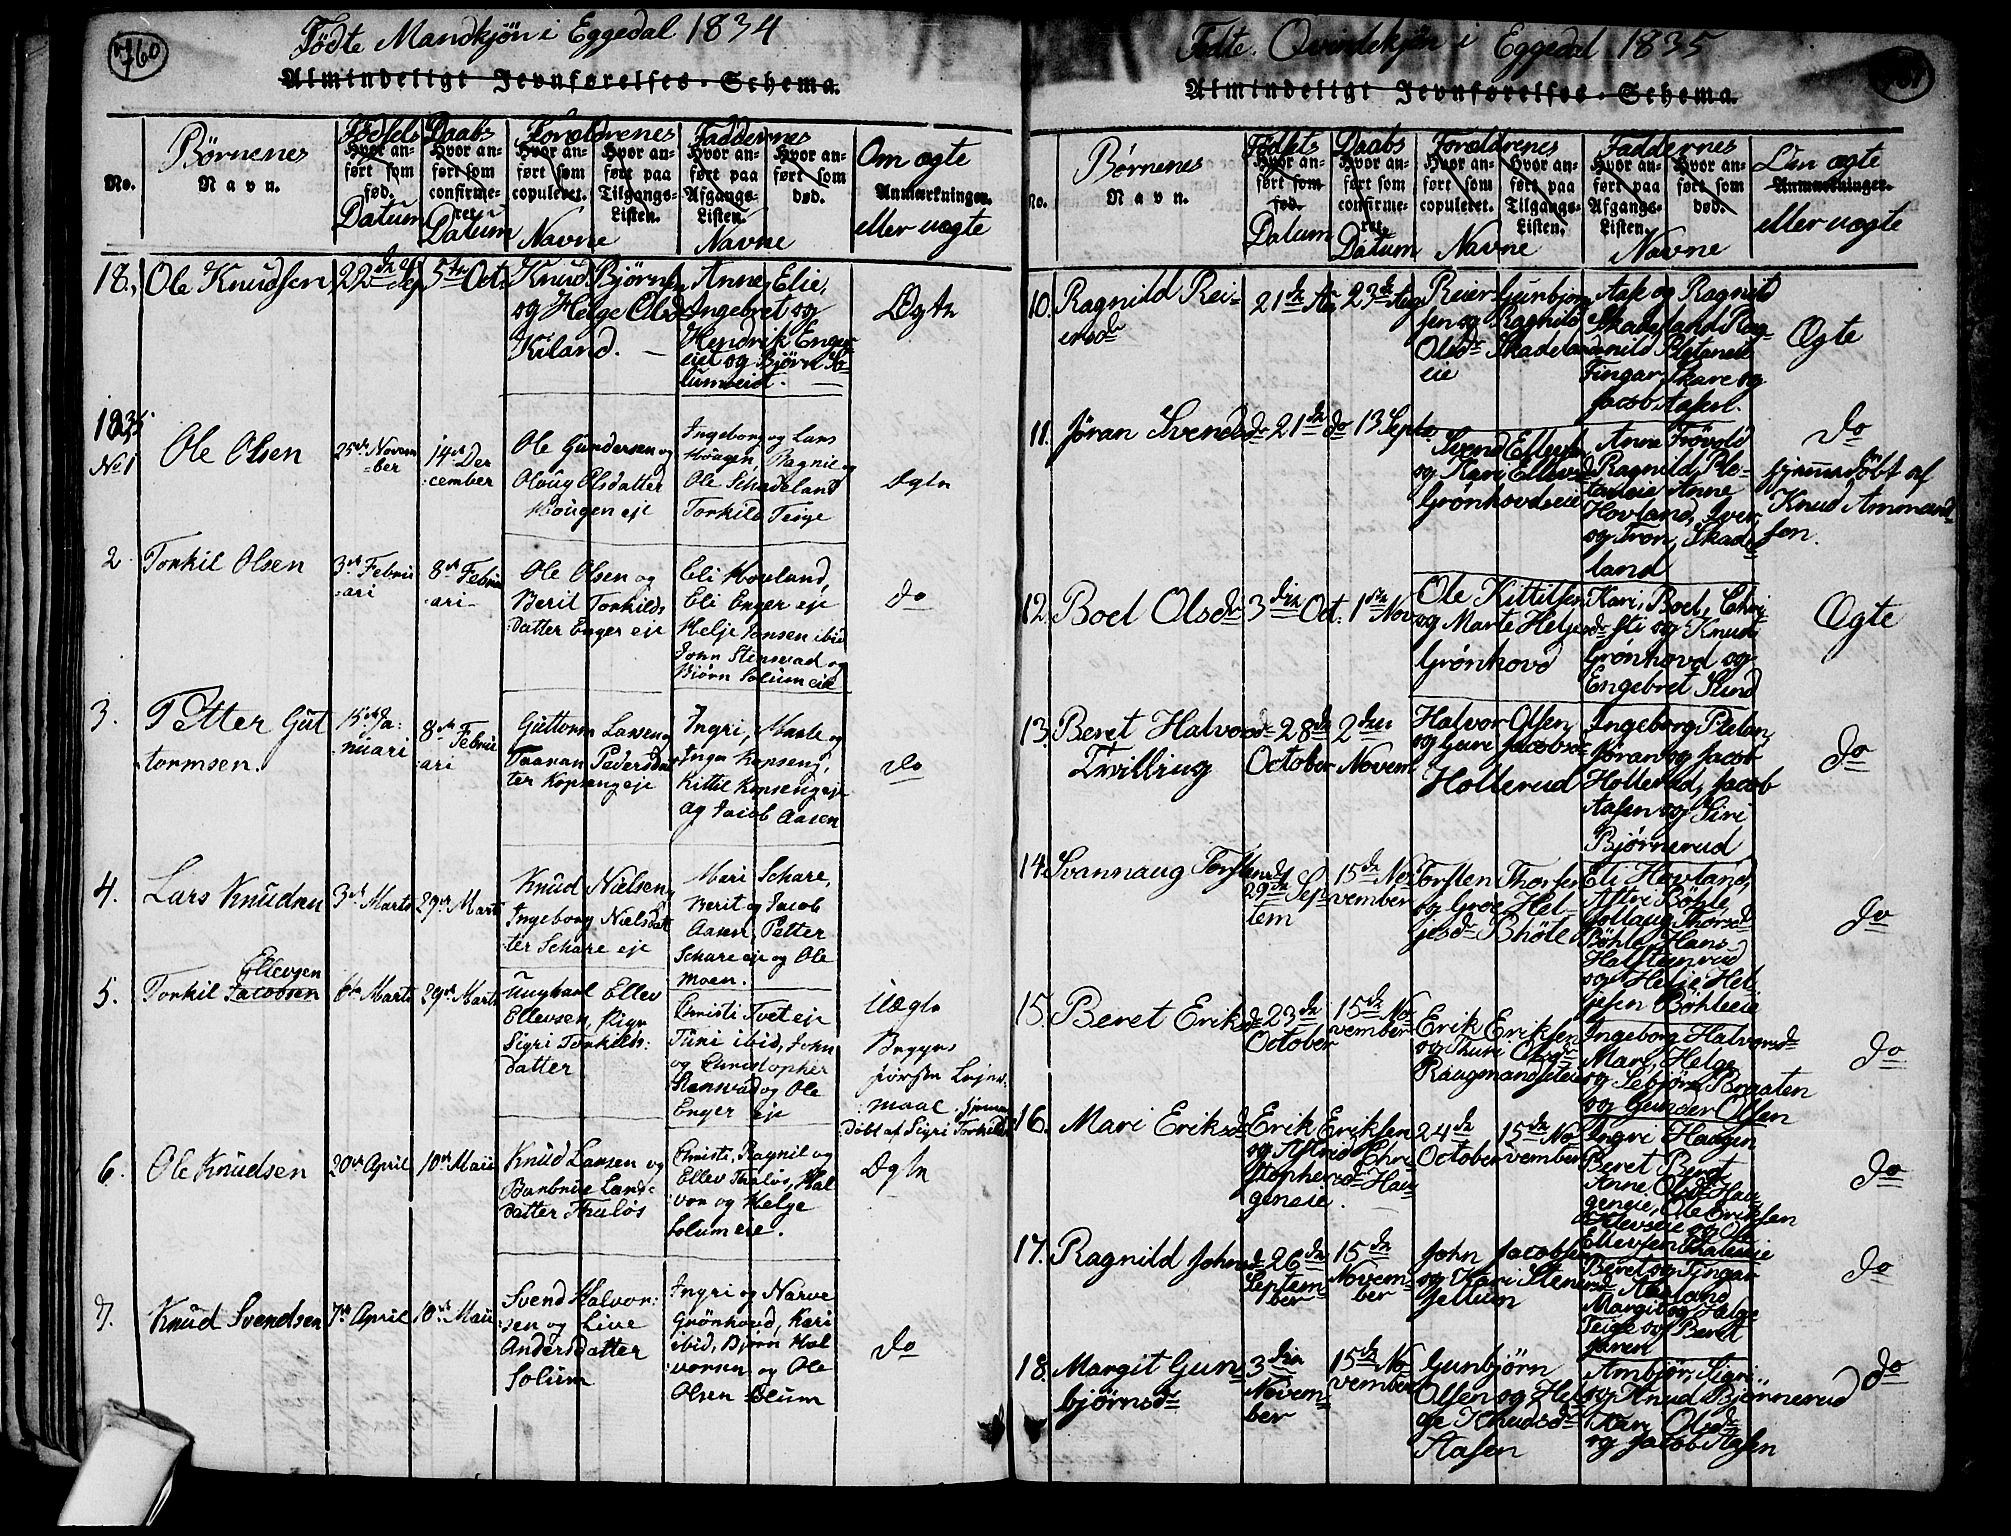 760
Födte Mandkjön i Eggedal 1834
Almindeligt Jevnførelses-Schema.
No.
Børnenes
Navn.
Födsels
Hvor an-
ført som
fød.
Datum
Daabs
Hvor an-
ført som
confirme-
ret.
Datum
Forældrenes
Hvor an-
ført som
copuleret.
Hvor an-
ført paa
Tilgangs-
Listen.
Navne
Faddernes
Hvor an-
ført paa
Afgangs-
Listen.
Hvor an-
ført som
død.
Navne
Om ægte
Anmærkninger.
eller uægte
18. Ole Knudsen
22de Sep
5te Oct.
Knud Bjørns
og Helge Olsd
Kiland.
Anne, Elie,
Ingebret og
Hendrik Enger
eiet og Bjørn So
lumseiet.
Ægte
1835
No 1
Ole Olsen
25de Novem
-ber
14de De
cember
Ole Gundersen og
Olaug Olsdatter
Hougen eje
Ingeborg og Lars
Hougen, Ragnie og
Ole Schadeland
Torkild Teige
Ægte
2
Torkil Olsen
3de Febru
ari
8de Febru
ari
Ole Olsen og
Berit Torkilds
datter Enger eje
Eli Hovland,
Eli Enger eje
Helje Jonsen ibid
John Stensrud og
Biørn Solum eie
do
3.
Petter Gut
tormsen.
15de Ja-
nuari
8de Febru
ari
Guttorm Larsen og
Taaran Pedersdat
ter Kopseng eje
Ingri, Marte og
Inger Kopseng,
Kittil Kopseng eje
og Jacob Aasen
do
4.
Lars Knudsen
3de Marts
29de Marts
Knud Nielsen
Ingeborg Nielsdat
ter Schare eje
Mari Schare,
Berit og Jacob
Aasen Petter
Schare eje og Ole
Moen.
5.
Ellevsen
Torkil Jacobsen
6te Marts
29de Marts
Ungkarl Ellev
Ellevsen, Pige
Sigri Torkils-
datter
Christi Tvet eje
Turi ibid, John
og Christopher
Stensrud og Ole
Enger eje
Uægte
Begges
første Lejer
maal. Hjemme
döbt af Sigri Torkilsd
6.
Ole Knudsen
20de April
10de Maii
Knud Larsen og
Barbrue Lars-
datter Thuløs
Christi, Ragnil og
Ellev Thuløs, Hal
vor og Helge
Solum eie.
Ægte
7.
Knud Svendsen
7de April
10de Maii
Svend Halvor-
sen og Live
Andersdatter
Solum
Ingri og Narve
Grönhovd, Kari
ibid, Bjørn Hal
vorsen og Ole
Olsen Solum
do
Födte Qvindekjön i Eggedal 1835
Almindeligt Jevnførelses-Schema.
No.
Børnenes
Navn.
Födsels
Hvor an-
ført som
fød.
Datum
Daabs
Hvor an-
ført som
confirme-
ret.
Datum
Forældrenes
Hvor an-
ført som
copuleret.
Hvor an-
ført paa
Tilgangs-
Listen.
Navne
Faddernes
Hvor an-
ført paa
Afgangs-
Listen.
Hvor an-
ført som
død.
Navne
Om ægte
Anmærkninger.
eller uægte
10. Ragnild Rei-
ersdr
21de
23de Aug
Reier Gunbjørn
sen og Ragnild
Olsdr Skadeland
eie
Aase og Ragnild
Skadesland Rag-
nild Pletaneie
Fingar Skare og
Jacob Aasen.
Ægte
11. Jøran Svendsdr
21de do
13 Septr
Svend Ellevs
og Kari Ellevsdr
Grønhovdseie
Anne Frövold
Ragnild Ple-
taneie Anne
Hovland, Iver
og Tron Skade
land
do
hjemmedöbt af
Knud Ammund
sen.
12. Boel Olsdr
3die Oct.
1ste Nov
Ole Kittilsen
og Marte Heljesdr
Grønhovd
Kari, Boel, Chri-
sti og Knud
Grønhovd og
Engebret Lund
Ægte
13. Beret Halvorsdr
Tvilling
28de
October
2den
Novem
Halvor Olsen
og Guri Jacobsdr
Hollerud
Ingeborg Pletan,
Jøran og Jacob
Hollerud, Jacob
Aasen og Siri
Bjørnerud
do
14. Svannaug Torstensdr
29de Sep-
tem
15de No-
vember
Torsten Thorsen
og Groe Hel-
jesdr Bhöle
Eli Hovland,
Astri Böhle
Gollaug Thorsdr
Böhle, Hans
Halsteinrud
og Helje Hel-
jesen Böhleeie
do
15. Beret Eriksdr
23de
October
15de No-
vember
Erik Eriksen
og Thuri Olsdr
Raugmandseie
Ingeborg Halvorsdr
Mari, Helge
og Sebjørn Braaten
og Gunder Olsen
do
16. Mari Eriksdr
Erik Eriksen
og Astrid Chri-
stophersdr Hau
geneie.
24de
October
15de No-
vember
Ingri Haugen
Beret Beret
Anne Olsdr Hau
geneie, Ole Eriksen
Ellevseie og Ole
Ellevsen Thuløseie
do
17. Ragnild Johnsdr
26de
Septem-
ber
15de
Novem-
ber
John Jacobsen
og Kari Stensrdr
Jellum
Beret og Fingar
Aasland
Margit og Helge
Teige og Beret
Juren
do
18. Margit Gun
bjørnsdr
3die
Novem-
ber
15de No-
vember
Gunbjörn
Olsen og Hel-
ge Knudsdr
Aasen
Ambjør, Sigri
og Knud Bjørnerud
Kari Olsdr
og Jacob Aasen
do